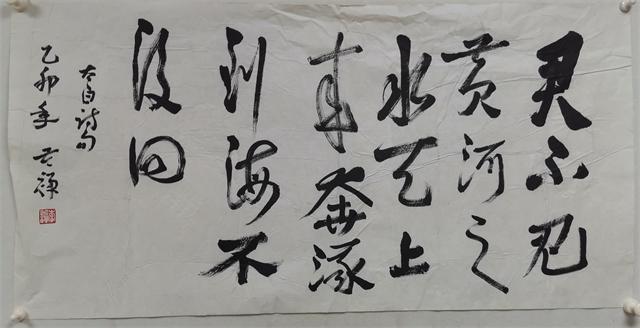 君不见
黄河之
水天上
来奔流
到海不
复回
太白诗句
乙卯年 苦禅